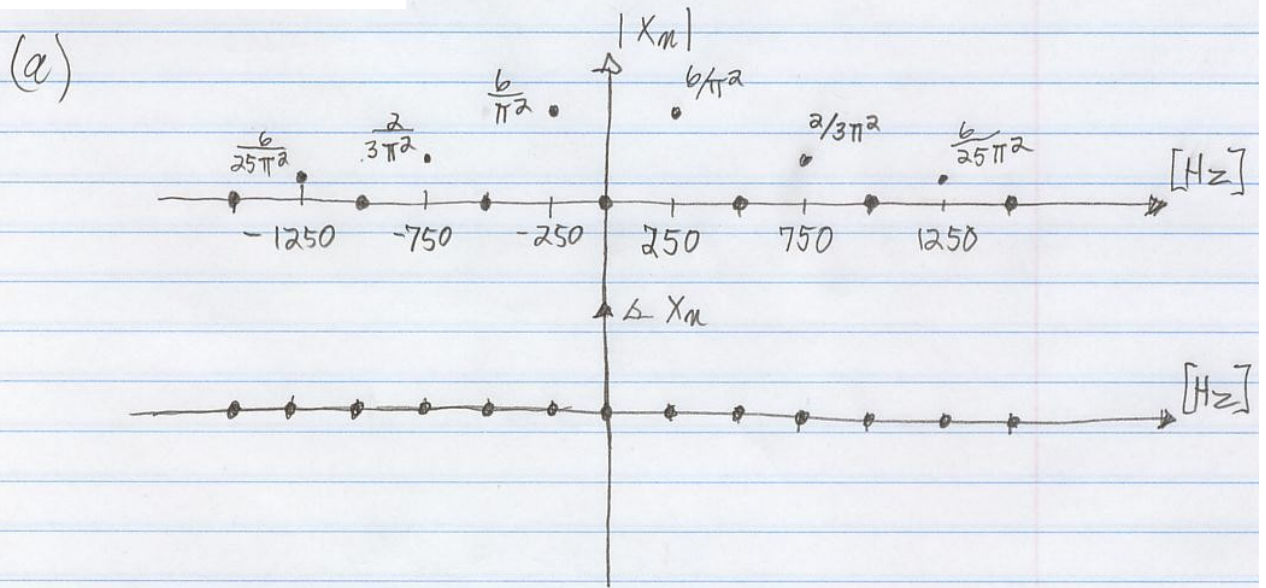 (a)
|Xn|
6/π² 6/π²
6/25π² 2/3π² 2/3π² 6/25π²
[Hz]
-1250 -750 -250 250 750 1250
∠ Xn
[Hz]